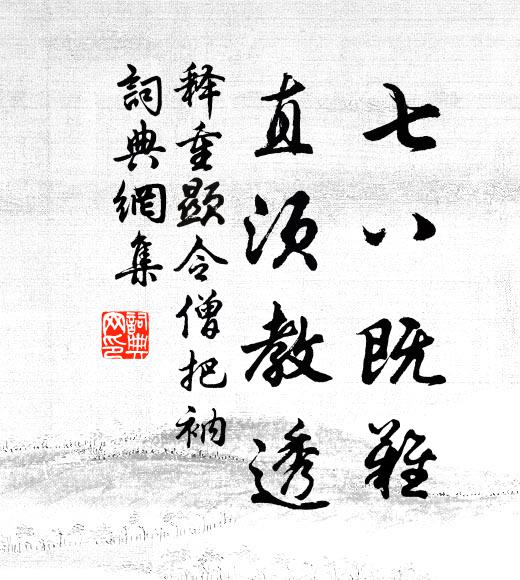 七八既難
直須教透
释重顯令僧把衲
詞典網集
詞典
网印